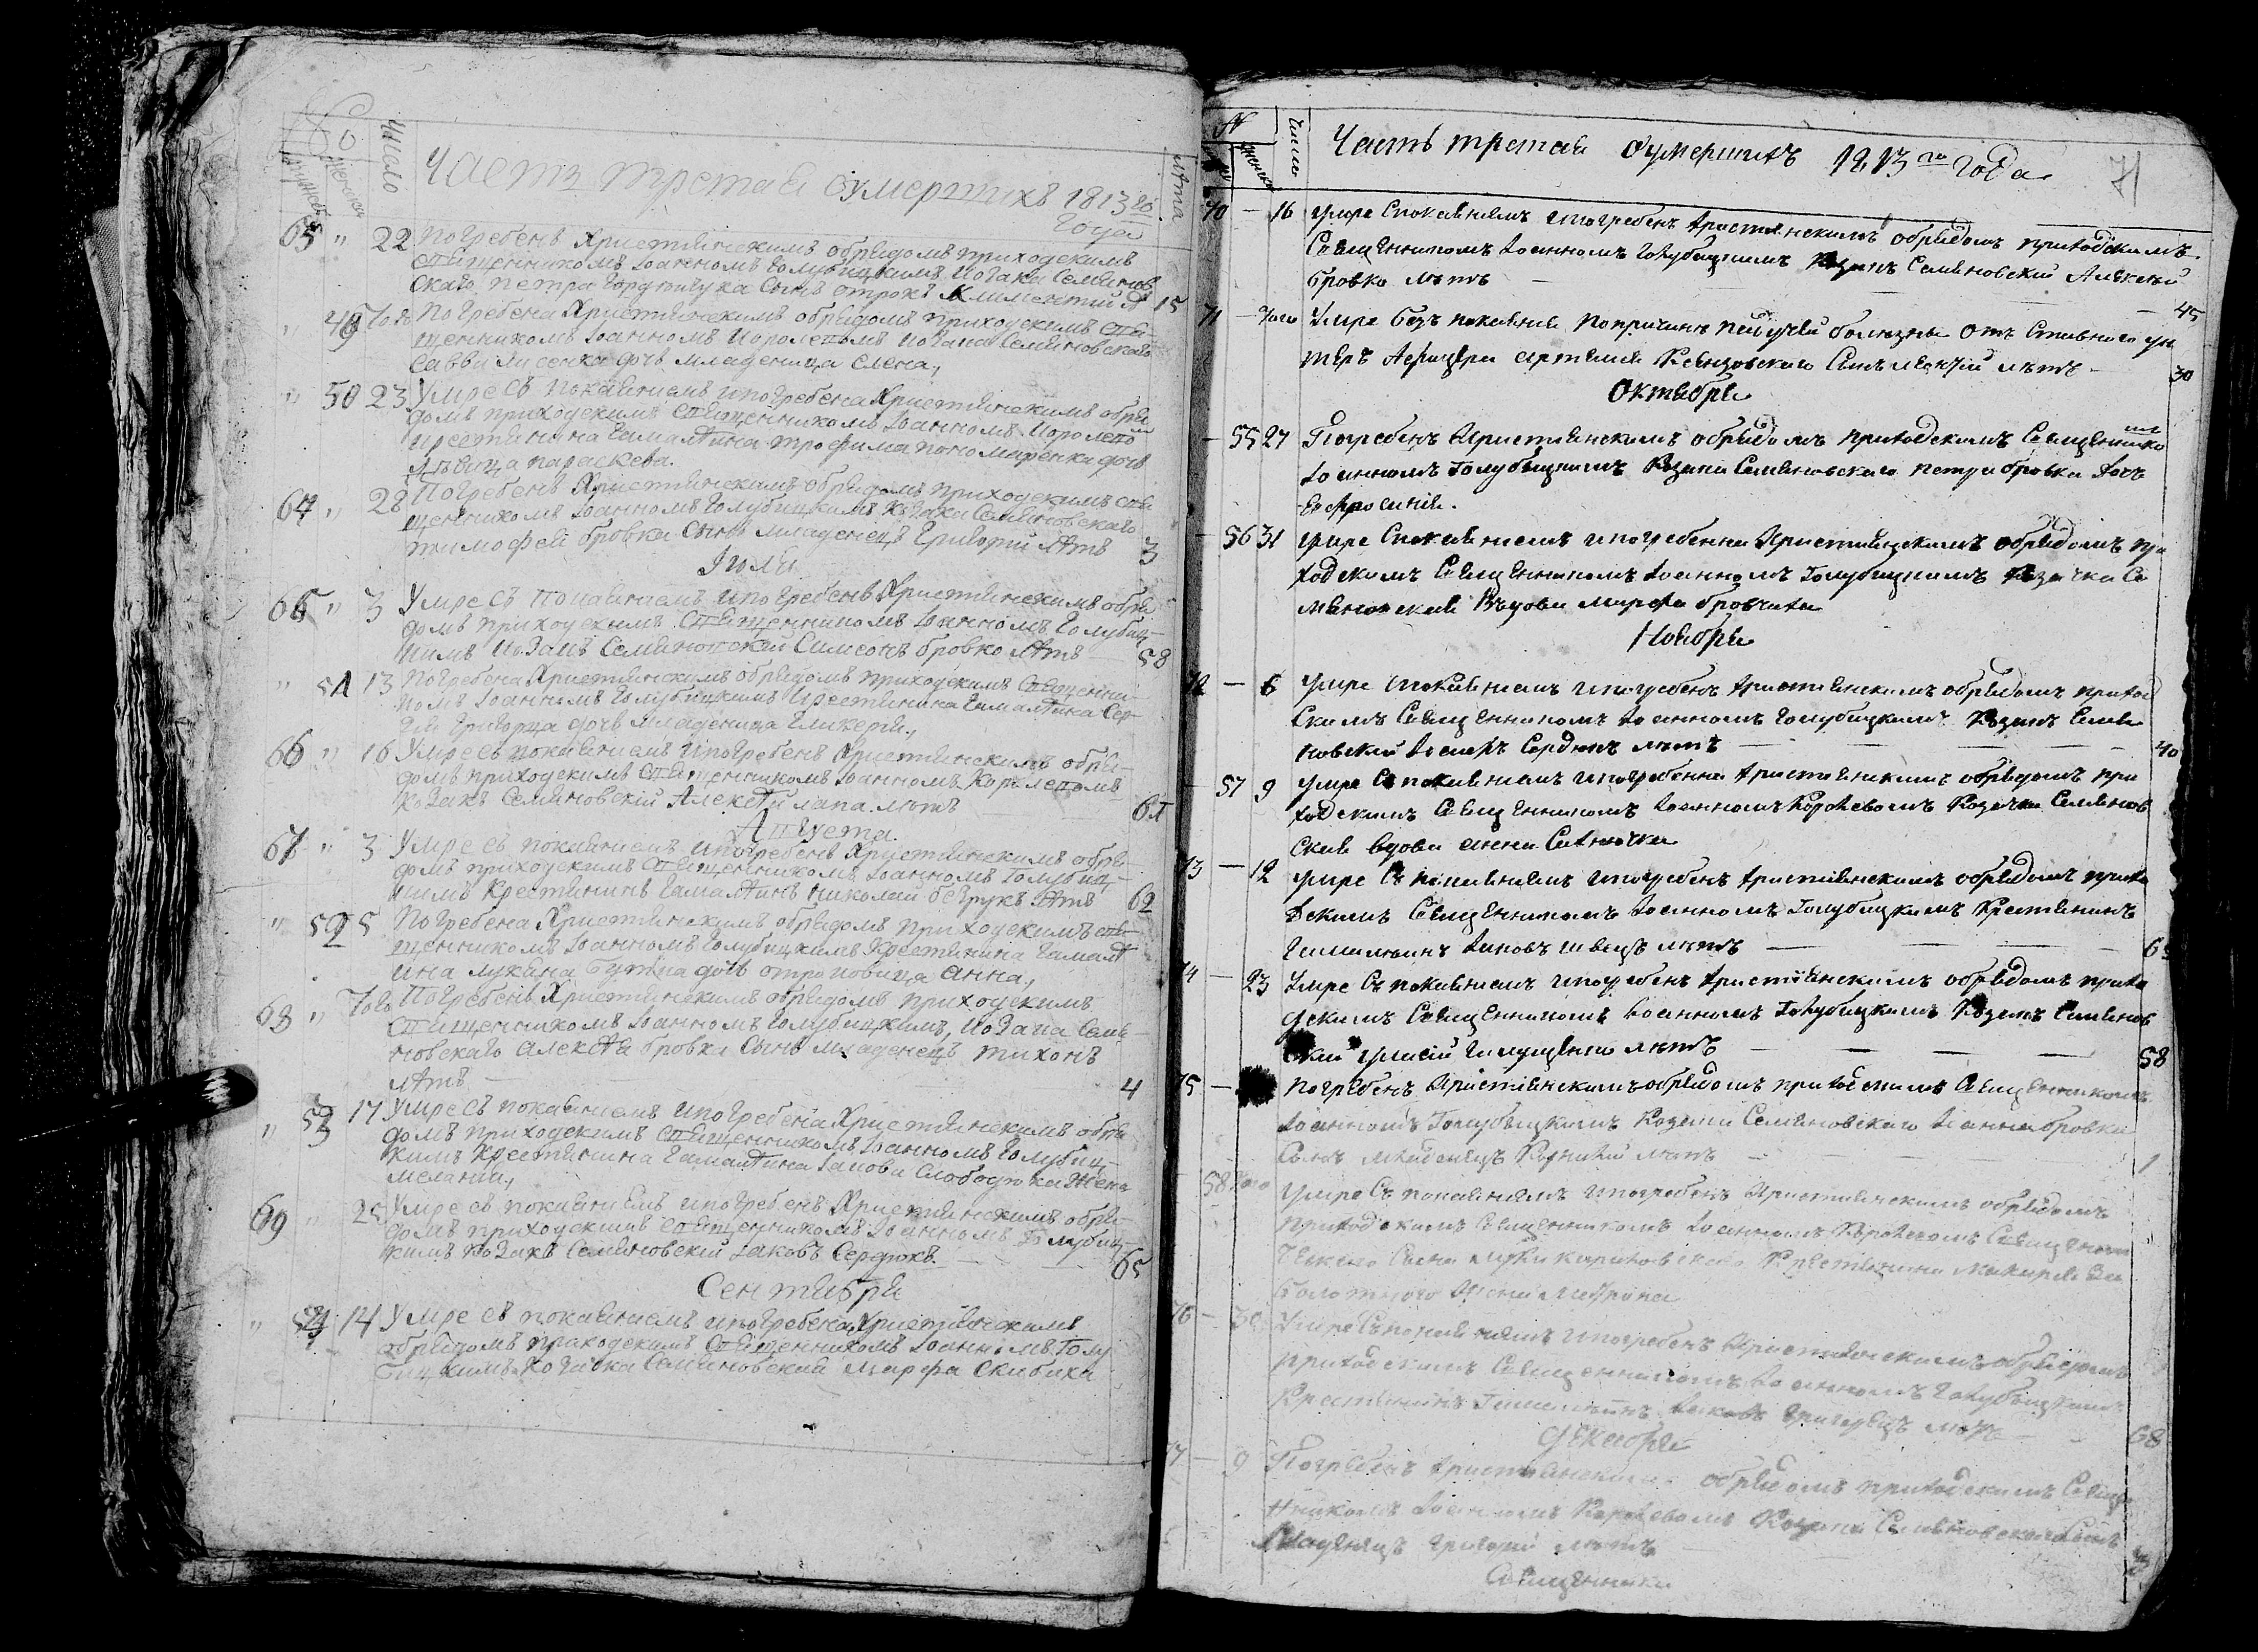 No
мужеска
женска
число
Часть третая оумершихъ 1813го
года
лѣта
63 " 22 Погребенъ Христіянскимъ обрядомъ приходскимъ
священникомъ Іоанномъ Голубицкимъ козака Семянов
скаго Петра сынъ отрокъ Климентій 15
" 49 того Погребена Христіянскимъ обрядомъ приходскимъ свя
щенникомъ Іоанномъ Королевомъ козака Семяновскаго
Саввы Лисенка дочь младеница Елена,
" 50 23 Умре съ покаяніемъ и погребена Христіянскимъ обря
домъ приходскимъ священникомъ Іоанномъ Королево
крестянина Гамалѣина Трофима Пономаренка дочь
дѣвица Параскева.
64 " 28 Погребенъ Христіянскимъ обрядомъ приходскимъ свя
щенникомъ Іоанномъ Голубицкимъ козака Семяновскаго
Тимофея Бровка сынъ младенецъ Григорій лѣтъ 3
Іюля
65 " 3 Умре съ покаяніемъ и погребенъ Христіянскимъ обря
домъ приходскимъ священникомъ Іоанномъ Голубиц
кимъ козакъ Семяновскій Симеонъ Бровко лѣтъ 58
" 51 13 Погребена Христіянскимъ обрядомъ приходскимъ священни
комъ Іоанномъ Голубицкимъ крестянина Гамалѣина Сер
гія Григорца дочь младеница Гликерія,
66 " 16 Умре съ покаяніемъ и погребенъ Христіянскимъ обря
домъ приходскимъ священникомъ Іоанномъ Королевомъ
козакъ Семяновскій Алексѣй Лапа лѣтъ
Августа.
67 " 3 Умре съ покаяніемъ и погребенъ Христіянскимъ обря
домъ приходскимъ священникомъ Іоанномъ Голубиц
кимъ крестянинъ Гамалѣинъ Николай лѣтъ 62
" 52 5 Погребена Христіянскимъ обрядомъ приходскимъ свя
щенникомъ Іоанномъ Голубицкимъ крестянина Гамалѣ
ина дочь отроковица Анна,
68 " того Погребенъ Христіянскимъ обрядомъ приходскимъ
священникомъ Іоанномъ Голубицкимъ, козака Семя
новскаго Алексѣя Бровки сынъ младенецъ Тихонъ
лѣтъ 4
" 53 17 Умре съ покаяніемъ и погребена Христіянскимъ обря
домъ приходскимъ священникомъ Іоанномъ Голубиц
кимъ крестянина Гамалѣина Іакова Слободюка жена
Меланія,
69 " Умре съ покаяніемъ и погребенъ Христіянскимъ обря
домъ приходскимъ священникомъ Іоанномъ Голубиц
кимъ козакъ Семяновскій Іаковъ Сердюкъ. 65
Сентября
" 54 14 Умре съ покаяніемъ и погребена Христіянскимъ
обрядомъ приходскимъ священникомъ Іоанномъ Голу
бицкимъ козачка Семяновская Марфа Скибиха
No
число
Часть третая оумершихъ 1813го года
71
70 — 16 Умре с покаяніемъ и погребенъ христіянскимъ обрядомъ приходскимъ
священникомъ Іоанномъ Голубицкимъ козакъ Семяновскій Алексѣй
Бровко лѣтъ — 45
71 — того Умре безъ покаянія попричинѣ падучей болезны отъ ун
теръ афицера Артемія сынъ лѣтъ — 30
Октября
— 55 27 Погребенъ Христіянскимъ обрядомъ приходскимъ священнико
Іоанномъ Голубицкимъ козака Семяновскаго Петра Бровка дочь
Евфросинія.
— 56 31 Умре с покаяніемъ и погребенна Христіянскимъ обрядомъ при
ходскимъ священникомъ Іоанномъ Голубицкимъ козачка Се
мяновская вдова Марфа Бровчиха
Ноября
72 — 6 Умре с покаяніемъ и погребенъ христіянскимъ обрядомъ приход
скимъ священникомъ Іоанномъ Голубицкимъ козакъ Семя
новскій Іосифъ Сердюкъ лѣтъ — 40
— 57 9 Умре с покаяніемъ и погребенна христіянскимъ обрядомъ при
ходскимъ священникомъ Іоанномъ Королевомъ козачка Семянов
ская вдова Анна
73 — 12 Умре съ покаяніемъ и погребенъ христіянскимъ обрядомъ прихо
дскимъ священникомъ Іоанномъ Голубицкимъ крестянинъ
Гамалѣинъ Іаковъ Швецъ лѣтъ —
74 — 23 Умре съ покаяніемъ и погребенъ христіянскимъ обрядомъ прихо
дскимъ священникомъ Іоанномъ Голубицкимъ козакъ Семянов
скій лѣтъ — 58
75 — Погребенъ Христіянскимъ обрядомъ приходскимъ священникомъ
Іоанномъ Голубицкимъ козака Семяновскаго Іоанна Бровки
сынъ младенецъ Корнилій лѣтъ — 1
58 того Умре съ покаяніемъ и погребенъ Христіянскимъ обрядомъ
приходскимъ священникомъ Іоанномъ Королевомъ священни
ческаго сына Луки крестянина Макарія За
болотного жена Матрона
76 — 30 Умре съ покаяніемъ и погребенъ Христіянскимъ обрядомъ
приходскимъ священникомъ Іоанномъ Голубицкимъ
крестянинъ Гамалѣинъ Іаковъ Григорецъ лѣтъ — 68
Декабря
77 — 9 Погребенъ христіянскимъ обрядомъ приходскимъ священ
никомъ Іоанномъ Королевомъ козака Семяновскаго сынъ
младенецъ Григорій лѣтъ
Священники